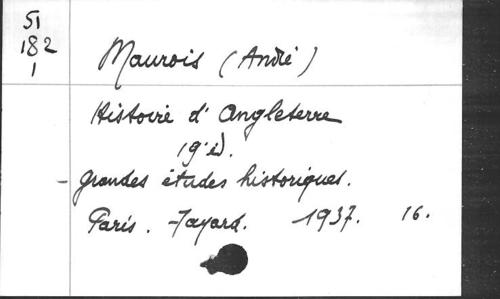 51
182
1
Maurois (André)
Histoire d' Angleterre
19e éd.
- Grandes études historiques.
Paris. Fayard. 1937. 16.